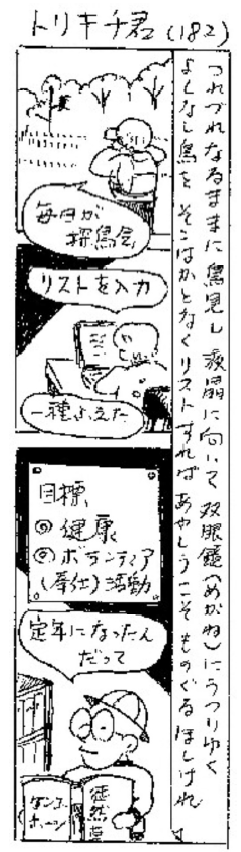 トリキチ君(182)
つれづれなるままに鳥見し 液晶に向いて 双眼鏡(めがね)にうつりゆく
よしなし鳥を そこはかとなくリストすればあやしうこそものぐるほしけれ
毎日が
探鳥会
リストを入力
一種ふえた
目標
◎健康
◎ボランティア
(奉仕)活動
定年になったん
だって
徒然草